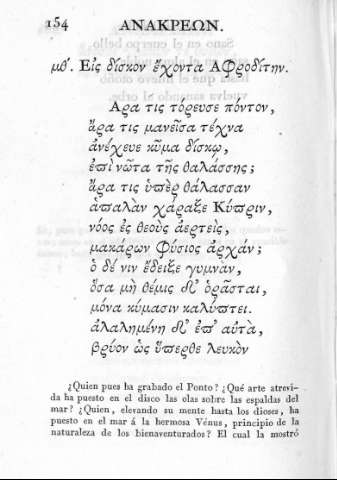 154 ΑΝΑΚΡΕΩΝ.
μθ'. Εἰς δίσκον ἔχοντα Ἀφροδίτην.
Αρα τις τόρευσε πόντον,
ἆρα τις μανεῖσα τέχνα
ἀνέχευε κῦμα δίσκῳ,
ἐπὶ νῶτα τῆς θαλάσσης;
ἆρα τις ὑπὲρ θάλασσαν
ἁπαλὰν χάραξε Κύπριν,
νόος ἐς θεοὺς ἀερτεὶς,
μακάρων φύσιος ἀρχάν;
ὁ δέ νιν ἔδειξε γυμνὰν,
ὅσα μὴ θέμις δ' ὁρᾶσται,
μόνα κύμασιν καλύπτει.
ἀλαλημένη δ' ἐπ' αὐτὰ,
βρύον ὡς ὕπερθε λευκὸν
¿Quien pues ha grabado el Ponto? ¿Qué arte atrevi-
da ha puesto en el disco las olas sobre las espaldas del
mar? ¿Quien, elevando su mente hasta los dioses, ha
puesto en el mar á la hermosa Vénus, principio de la
naturaleza de los bienaventurados? El cual la mostró